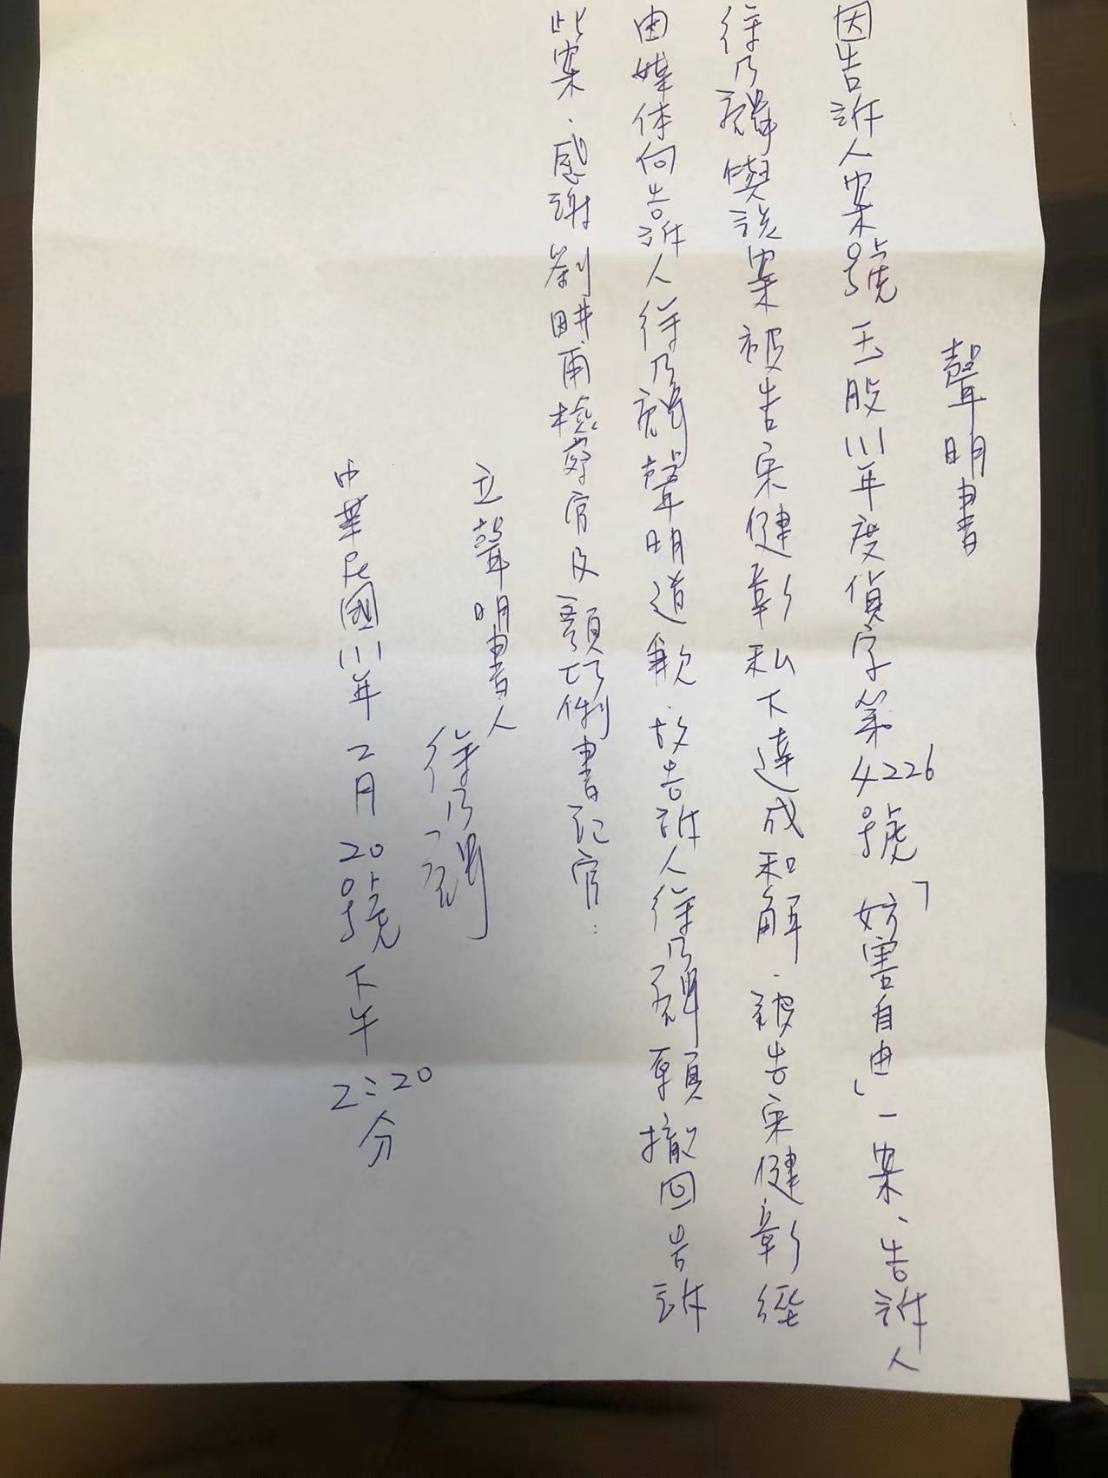 聲明書
因告訴人案號 玉股111年度偵字第4226號「妨害自由」一案、告訴人
徐乃麟與該案被告宋健彰私下達成和解.被告宋健彰經
由媒体向告訴人徐乃麟聲明道歉.故告訴人徐乃麟願撤回告訴
此案.感謝劉畊甫檢察官及顏巧俐書記官:
立聲明書人
徐乃麟
中華民國111年2月20號下午2:20分